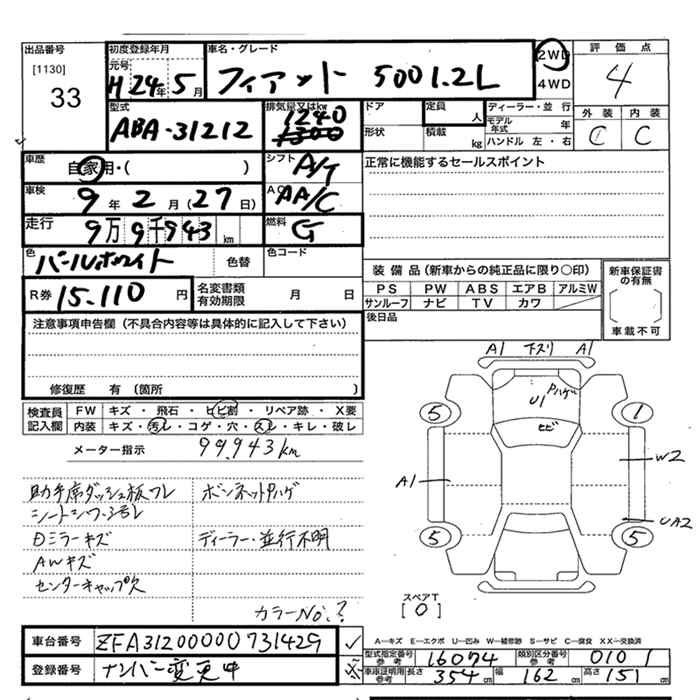 出品番号
[1130]
33
初度登録年月
元号 H24年5月
車名・グレード
フィアット 500 1.2L
2WD
4WD
評価点
4
外装 内装
C C
型式
ABA-31212
排気量又はkw
1240
1300
ドア
形状
定員 人
積載 kg
ディーラー・並行
モデル年式 年
ハンドル 左・右
車歴
自家用・( )
シフト A/T
正常に機能するセールスポイント
車検
9年2月(27日)
AC AA/C
走行
9万9千943km
燃料 G
色
パールホワイト
色替
色コード
R券 15.110円
名変書類有効期限 月 日
装備品(新車からの純正品に限り○印)
PS PW ABS エアB アルミW
サンルーフ ナビ TV カワ
後日品
新車保証書の有無
車載不可
注意事項申告欄(不具合内容等は具体的に記入して下さい)
修復歴 有(箇所 )
検査員記入欄
FW キズ・飛石・ヒビ割・リペア跡・X要
内装 キズ・汚レ・コゲ・穴・スレ・キレ・破レ
メーター指示 99,943km
助手席ダッシュ板ワレ
シートシワ・汚レ
Dミラーキズ
AWキズ
センターキャップ欠
ボンネットPハゲ
ディーラー・並行不明
カラーNo.?
A1 下スリ A1
Pハゲ
U1
ヒビ
5 1
A1
W2
UA2
5 5
スペアT
[0]
A―キズ E―エクボ U―凹み W―補修跡 S―サビ C―腐食 XX―交換済
車台番号 ZFA3120000J731429
登録番号 ナンバー変更中
型式指定番号 参考 16074
類別区分番号 参考 0101
車庫証明用 参考 長さ 354cm 幅 162cm 高さ 151cm